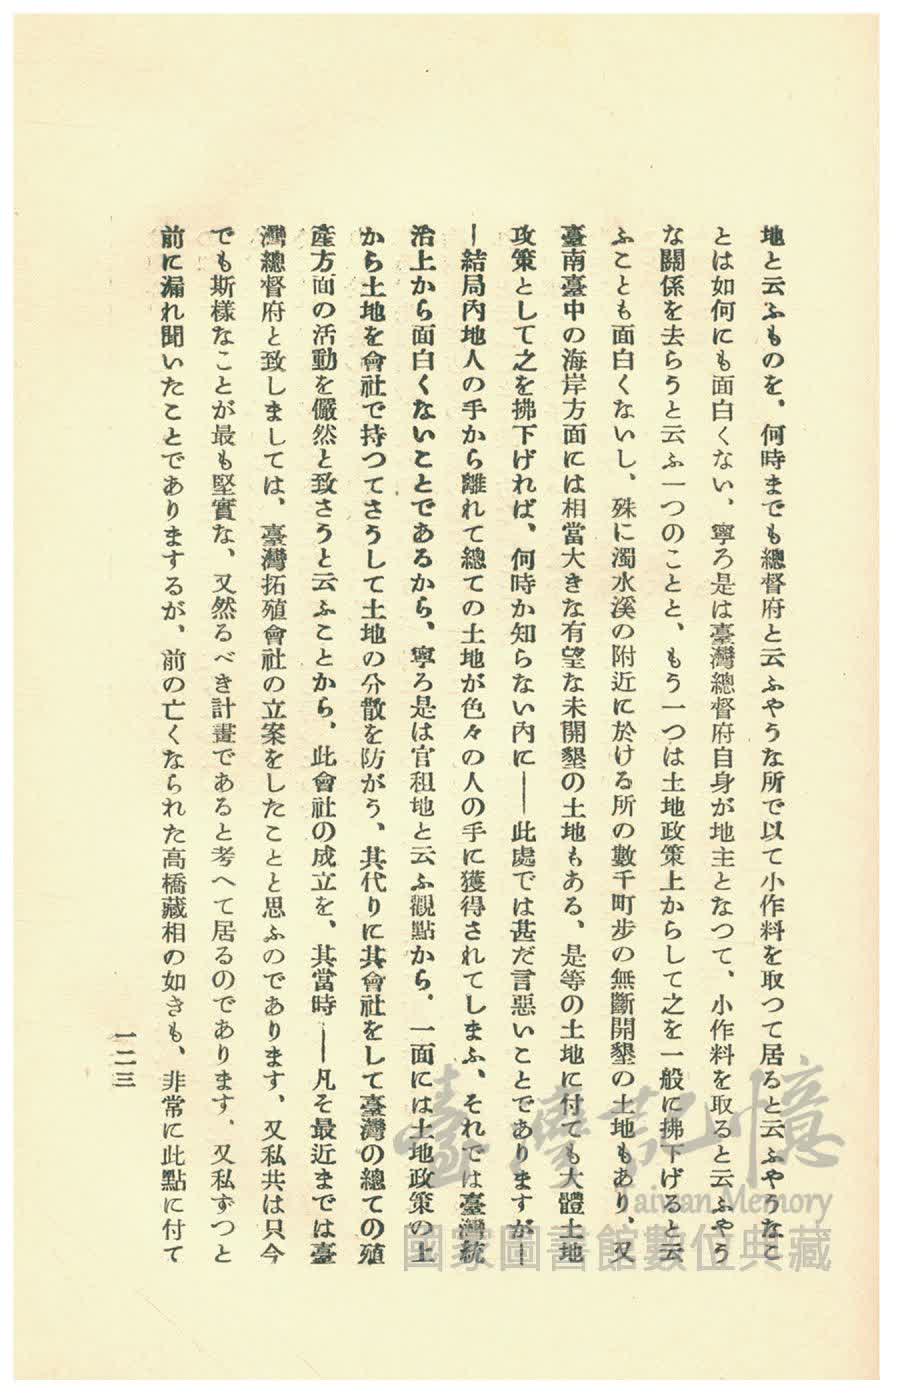 地と云ふものを、何時までも總督府と云ふやうな所で以て小作料を取つて居ると云ふやうなこ
とは如何にも面白くない、寧ろ是は臺灣總督府自身が地主となつて、小作料を取ると云ふやう
な關係を去らうと云ふ一つのことと、もう一つは土地政策上からして之を一般に拂下げると云
ふことも面白くないし、殊に濁水溪の附近に於ける所の數千町步の無斷開墾の土地もあり、又
臺南臺中の海岸方面には相當大きな有望な未開墾の土地もある、是等の土地に付ても大體土地
攻策として之を拂下げれば、何時か知らない內に——此處では甚だ言惡いことでありますが—
—結局內地人の手から離れて總ての土地が色々の人の手に獲得されてしまふ、それでは臺灣統
治上から面白くないことであるから、寧ろ是は官租地と云ふ觀點から、一面には土地政策の上
から土地を會社で持つてさうして土地の分散を防がう、其代りに其會社をして臺灣の總ての殖
產方面の活動を儼然と致さうと云ふことから、此會社の成立を、其當時——凡そ最近までは臺
灣總督府と致しましては、臺灣拓殖會社の立案をしたことと思ふのであります、又私共は只今
でも斯樣なことが最も堅實な、又然るべき計畫であると考へて居るのであります、又私ずつと
前に漏れ聞いたことでありまするが、前の亡くなられた高橋藏相の如きも、非常に此點に付て
一二三
臺灣記憶
Taiwan Memory
國家圖書館數位典藏